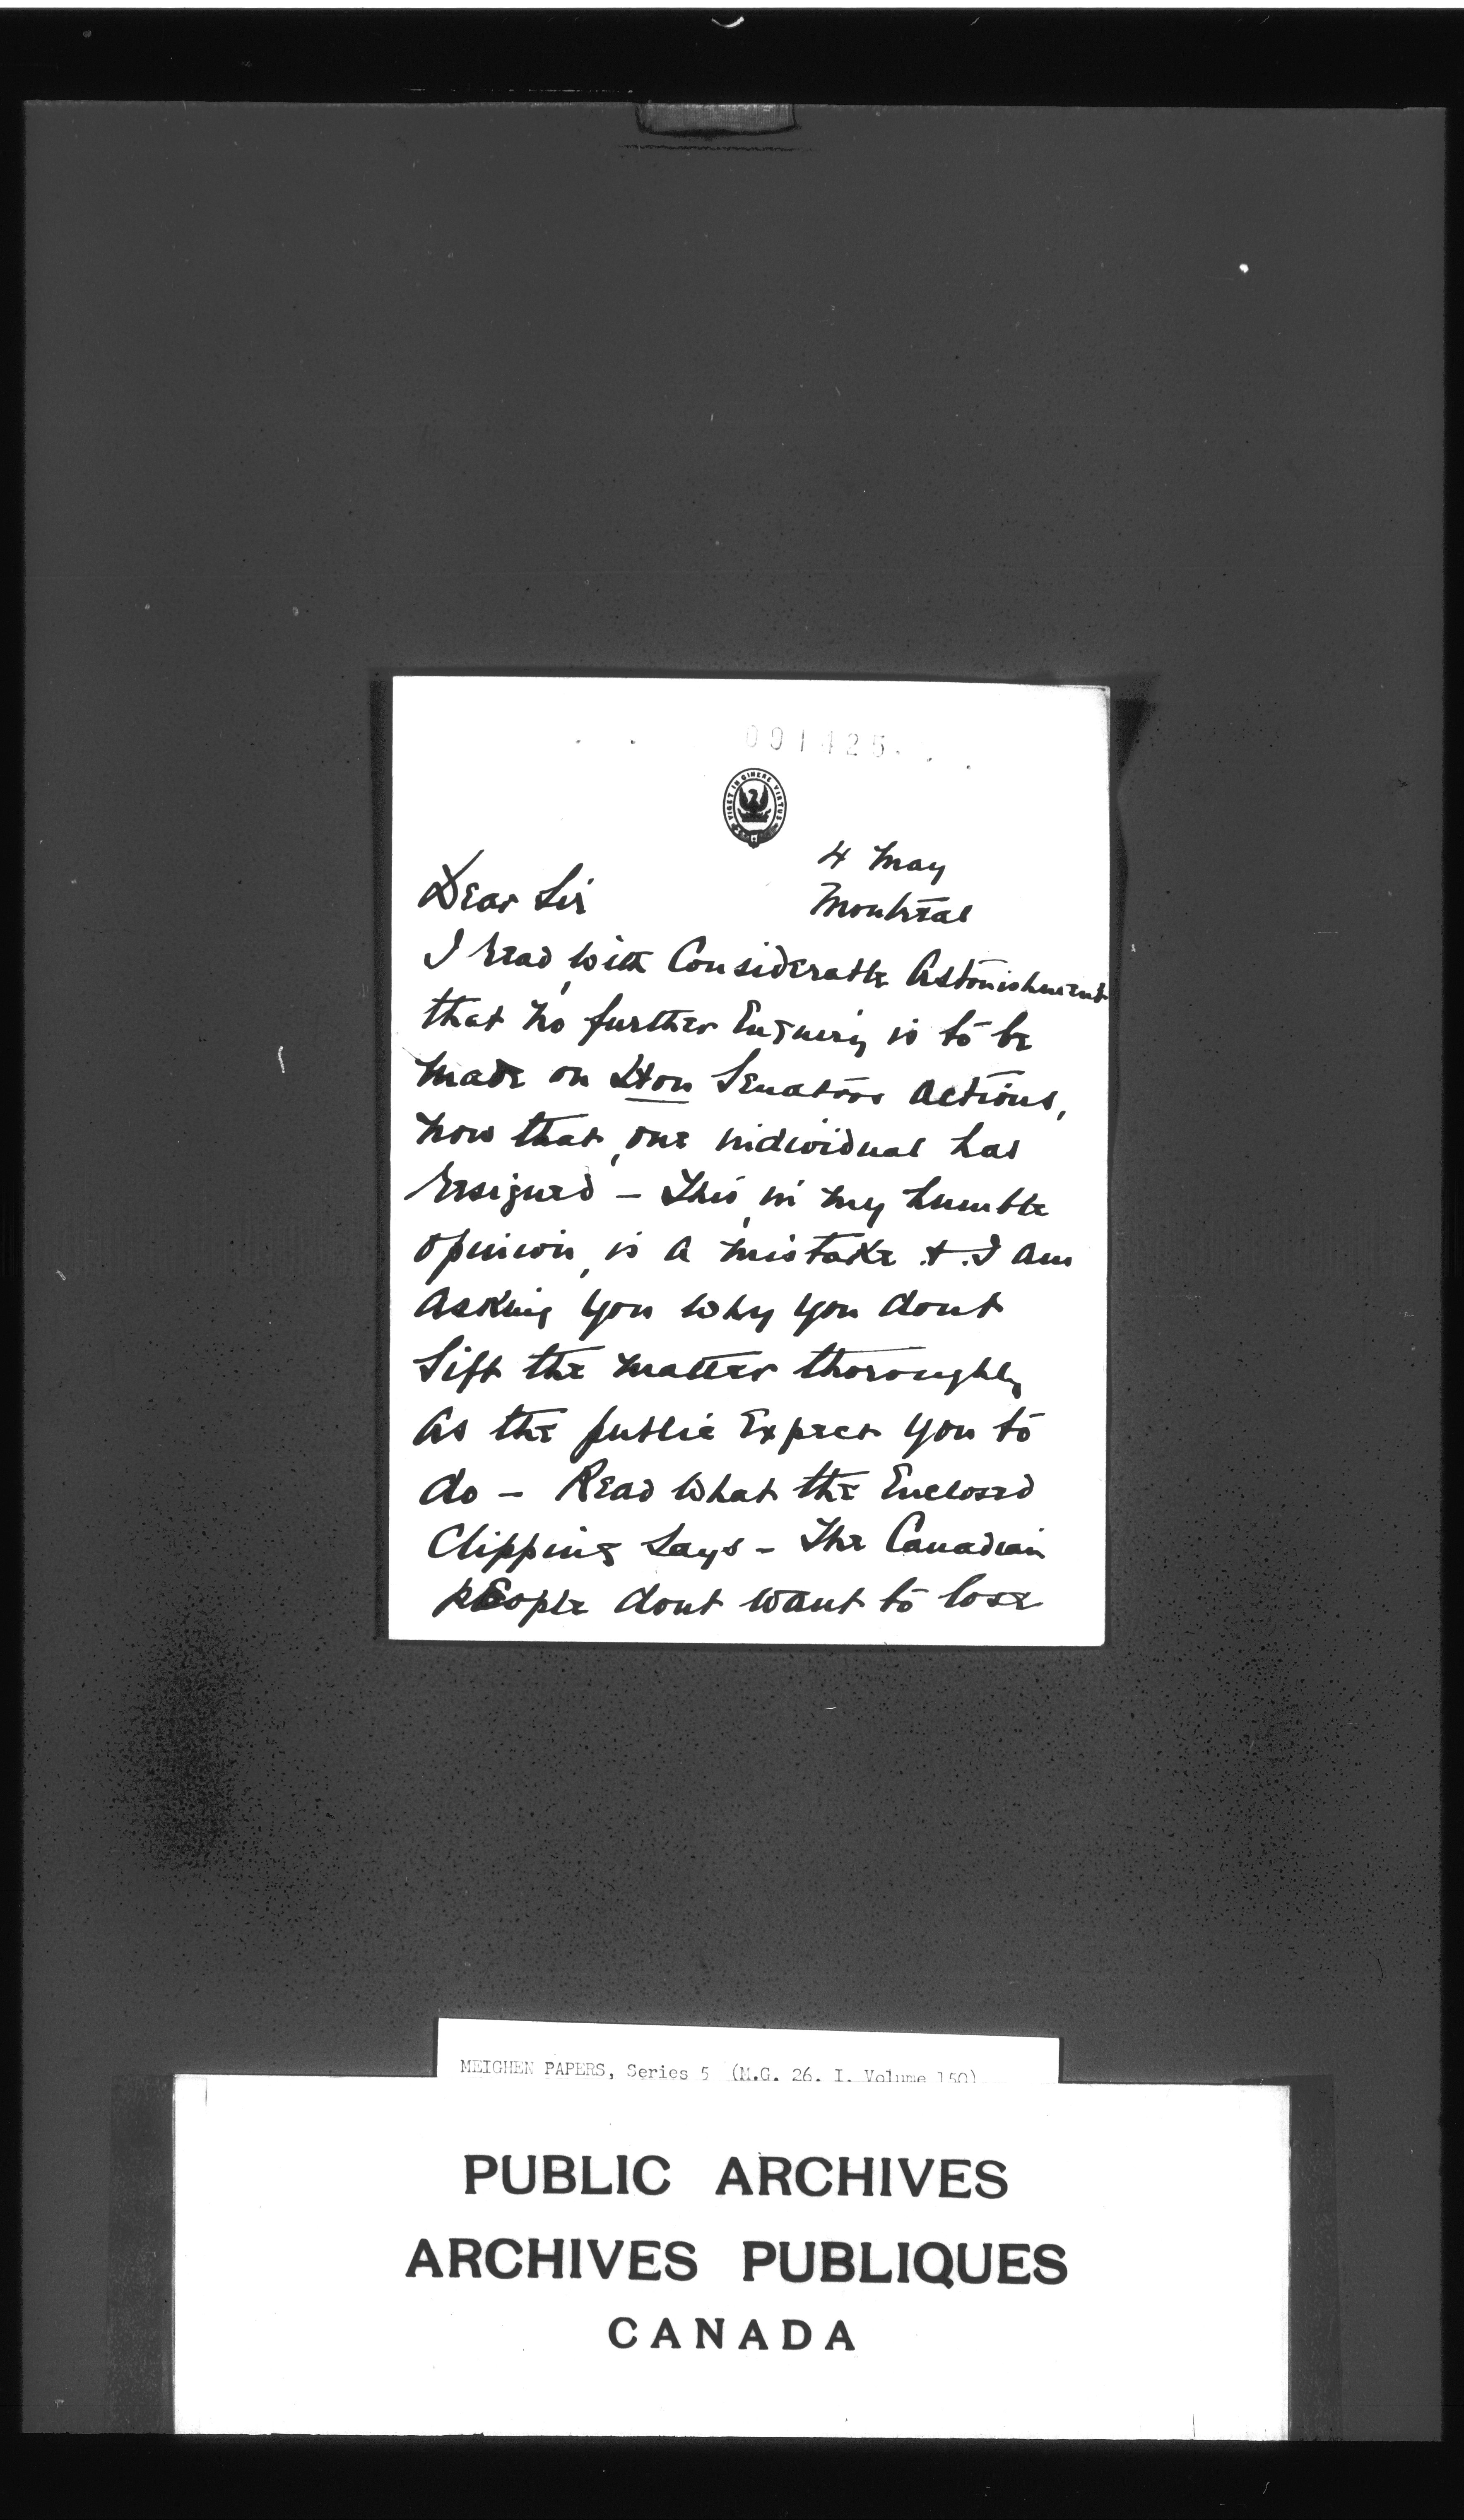 001425
VIGET IN CINERE VIRTUS
4 May
Montreal
Dear Sir
I read, with Considerable Astonishment
that no further Enquiry is to be
made on Hon Senators actions,
now that, one individual has
resigned – This, in my humble
opinion, is a mistake & I am
asking you why you dont
sift the matter thoroughly
as the public Expect you to
do – Read what the Enclosed
Clipping says – The Canadian
pEople dont want to lose
MEIGHEN PAPERS, Series 5 (M.G. 26. I. Volume 150)
PUBLIC ARCHIVES
ARCHIVES PUBLIQUES
CANADA